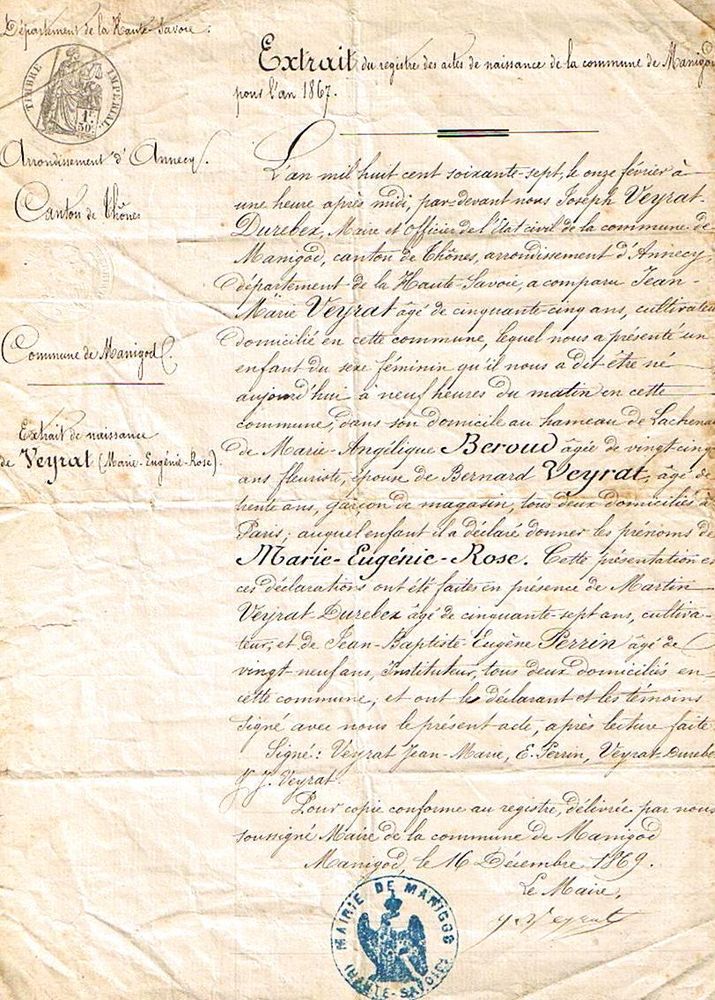 Département de la Haute-Savoie.
TIMBRE IMPÉRIAL
1F.
50c.
Arrondissement d'Annecy.
Canton de Thônes
Commune de Manigod.
Extrait de naissance
de Veyrat (Marie-Eugénie-Rose).
Extrait du registre des actes de naissance de la commune de Manigod
pour l'an 1867.
L'an mil huit cent soixante-sept, le onze février à
une heure après midi, par-devant nous Joseph Veyrat-
Durebex, Maire et officier de l'Etat civil de la commune de
Manigod, canton de Thônes, arrondissement d'Annecy,
département de la Haute-Savoie, a comparu Jean-
Marie Veyrat âgé de cinquante-cinq ans, cultivateur
domicilié en cette commune, lequel nous a présenté un
enfant du sexe féminin qu'il nous a dit être né
aujourd'hui à neuf heures du matin en cette
commune, dans son domicile au hameau de Lachenal
de Marie-Angélique Beroud âgée de vingt-cinq
ans fleuriste, épouse de Bernard Veyrat, âgé de
trente ans, garçon de magasin, tous deux domiciliés à
Paris; auquel enfant il a déclaré donner les prénoms de
Marie-Eugénie-Rose. Cette présentation et
ces déclarations ont été faites en présence de Martin
Veyrat-Durebex âgé de cinquante-sept ans, cultiva-
teur, et de Jean-Baptiste-Eugène Perrin âgé de
vingt-neuf ans, Instituteur, tous deux domiciliés en
cette commune, et ont le déclarant et les témoins
signé avec nous le présent acte, après lecture faite.
Signé: Veyrat Jean-Marie, E. Perrin, Veyrat-Durebex
J. Veyrat.
Pour copie conforme au registre, délivrée par nous
soussigné Maire de la commune de Manigod
Manigod, le 16 Décembre 1869.
Le Maire,
J. Veyrat
MAIRIE DE MANIGOD
(HAUTE-SAVOIE)